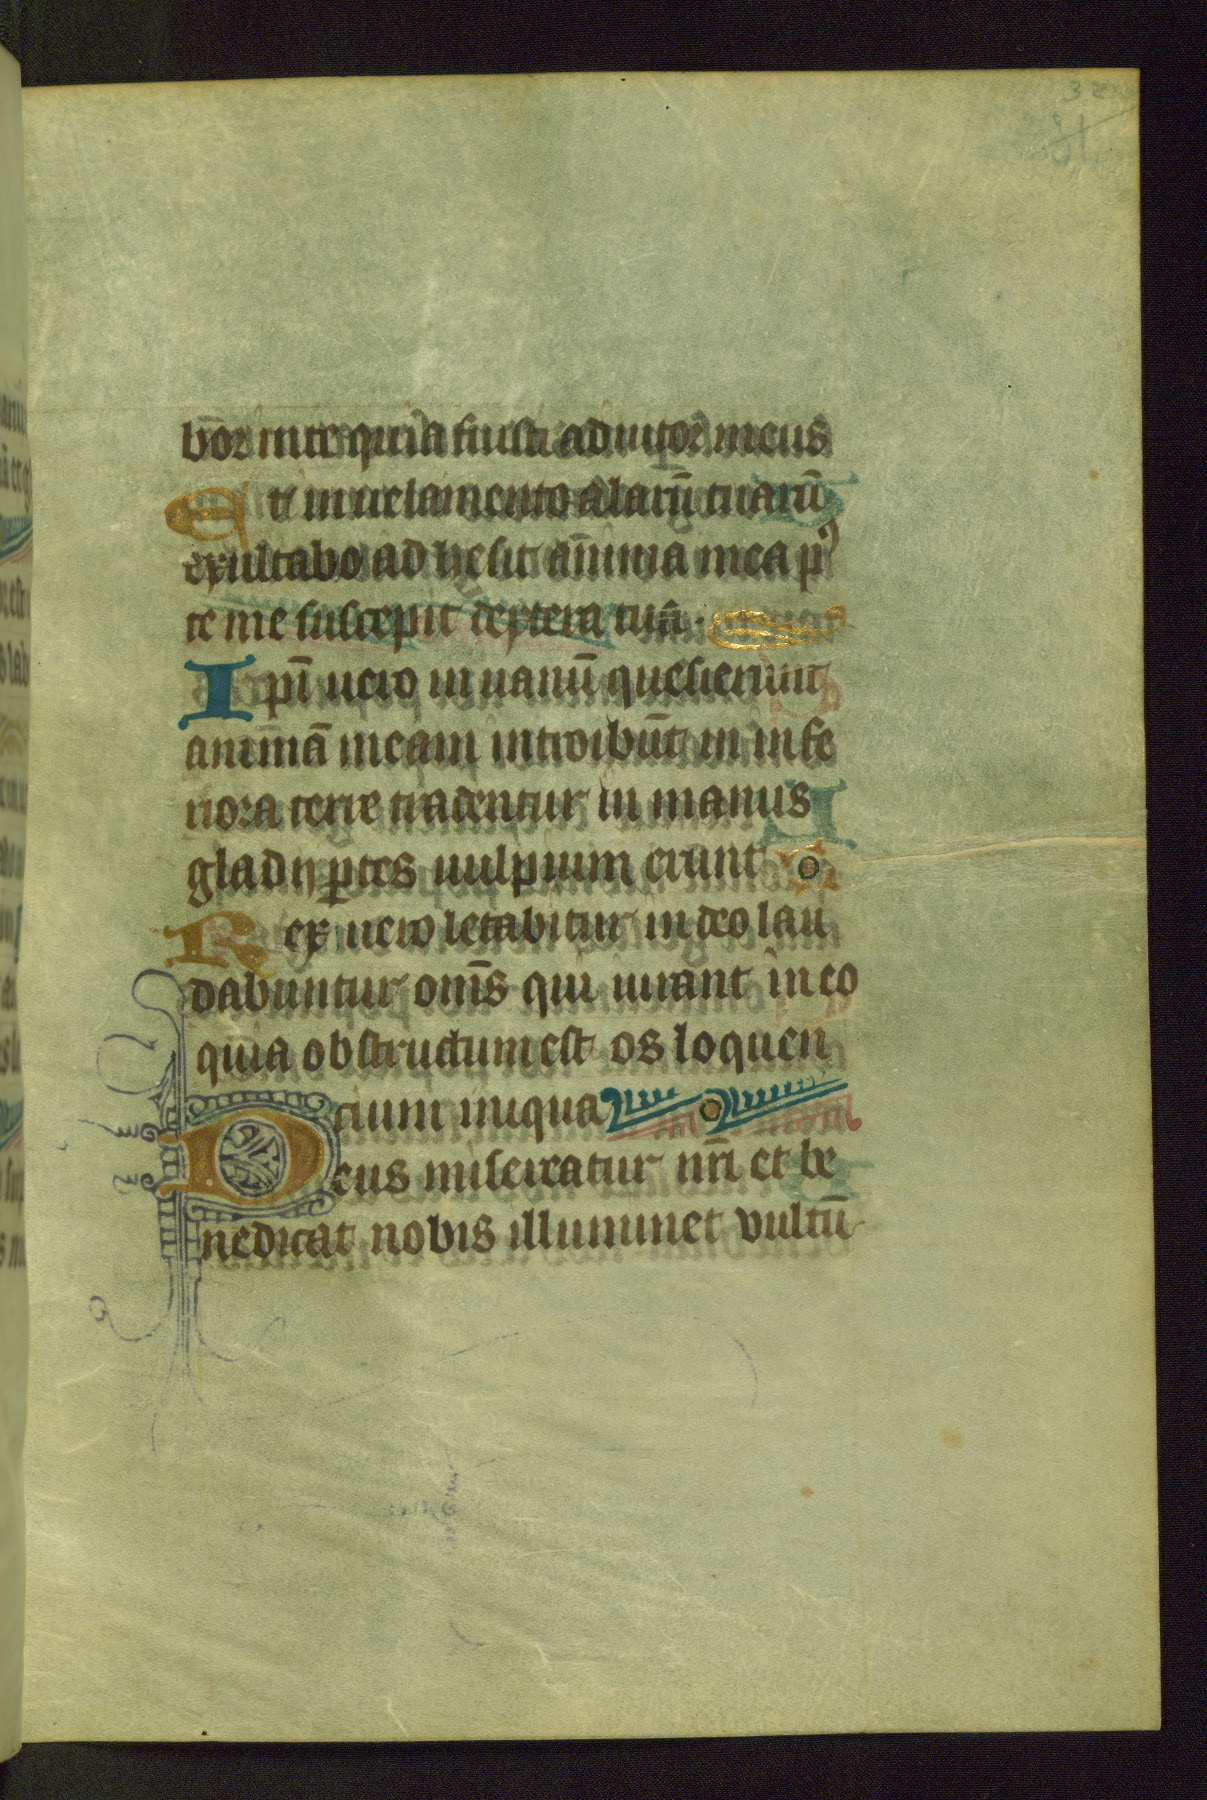 bor̄ in te quia fuisti adiutor meus
Et in uelamento alarū tuarū
exultabo adhesit anīma mea p⁹
te me suscepit dextera tua.
Ipī uero in uanū quesierunt
animā meam introibūt in infe
riora terre tradentur in manus
gladij p̱tes uulpium erunt
Rex uero letabitur in deo lau
dabuntur om̄s qui iurant in eo
quia obstructum est os loquen
tium iniqua
Deus misereatur nr̄i et be
nedicat nobis illuminet vultū